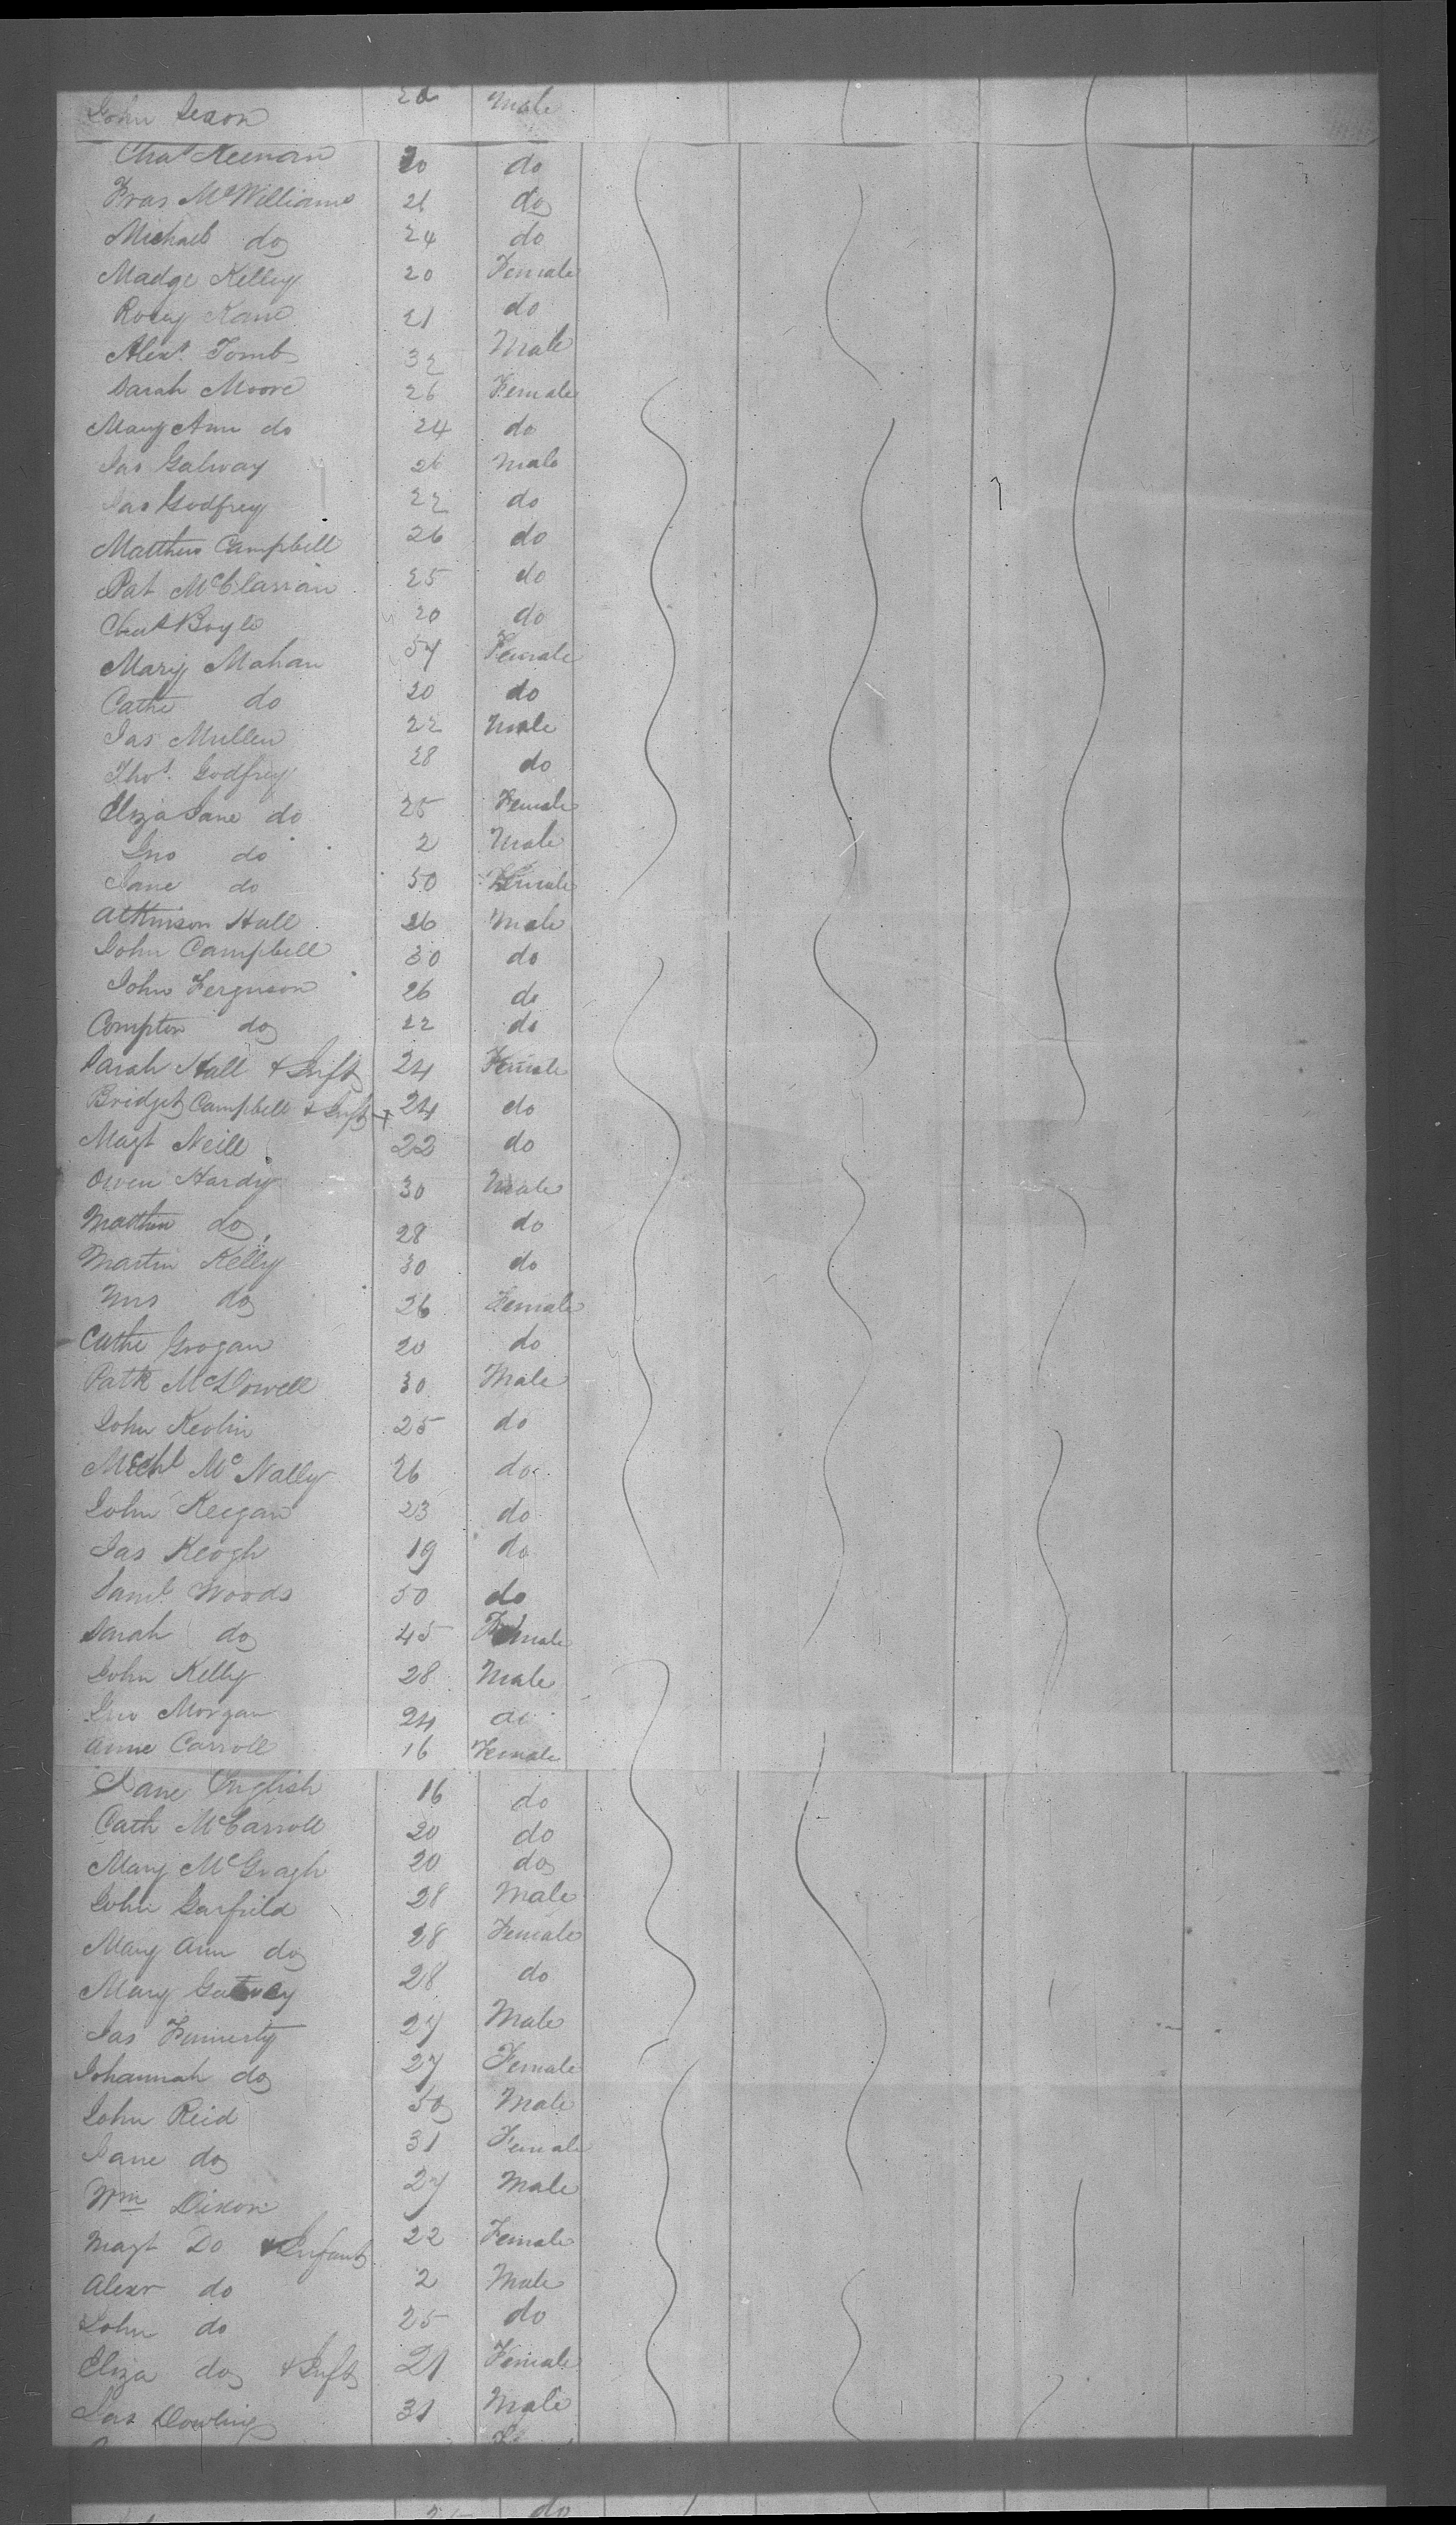 John Dixon 20 Male
Chas Keenan 20 do
Fras McWilliams 26 do
Michael do 24 do
Madge Kelley 20 Female
Rosey Kane 21 do
Alexr. Tomb 32 Male
Sarah Moore 26 Female
Mary Ann do 24 do
Jas Galway 26 Male
Jas Godfrey 22 do
Matthew Campbell 26 do
Pat McClarnan 25 do
Chas Boyle 20 do
Mary Mahan 54 Female
Cathe do 20 do
Jas Mullen 22 Male
Thos. Godfrey 28 do
Eliza Jane do 25 Female
Jno do 2 Male
Jane do 50 Female
Atkinson Hall 26 Male
John Campbell 30 do
John Ferguson 26 do
Compton do 22 do
Sarah Hall & Inft 24 Female
Bridget Campbell & Inft 24 do
Magt Neill 22 do
Owen Hardy 30 Male
Matthew do 28 do
Martin Kelly 30 do
Mrs do 26 Female
Cathe Grogan 20 do
Patk McDowell 30 Male
John Keolin 25 do
Michl McNally 26 do
John Keegan 23 do
Jas Keogh 19 do
Saml. Woods 50 do
Sarah do 45 Female
John Kelly 28 Male
Jno Morgan 24 do
Anne Carroll 16 Female
Jane English 16 do
Cath McCarroll 20 do
Mary McGragh 20 do
John Garfield 28 Male
Mary Ann do 28 Female
Mary 28 do
Jas Finnerty 27 Male
Johannah do 27 Female
John Reid 50 Male
Jane do 31 Female
Wm Dixon 27 Male
Magt Do & Infant 22 Female
Alexr do 2 Male
John do 25 do
Eliza do & Inft 21 Female
Jas Dowling 31 Male
do